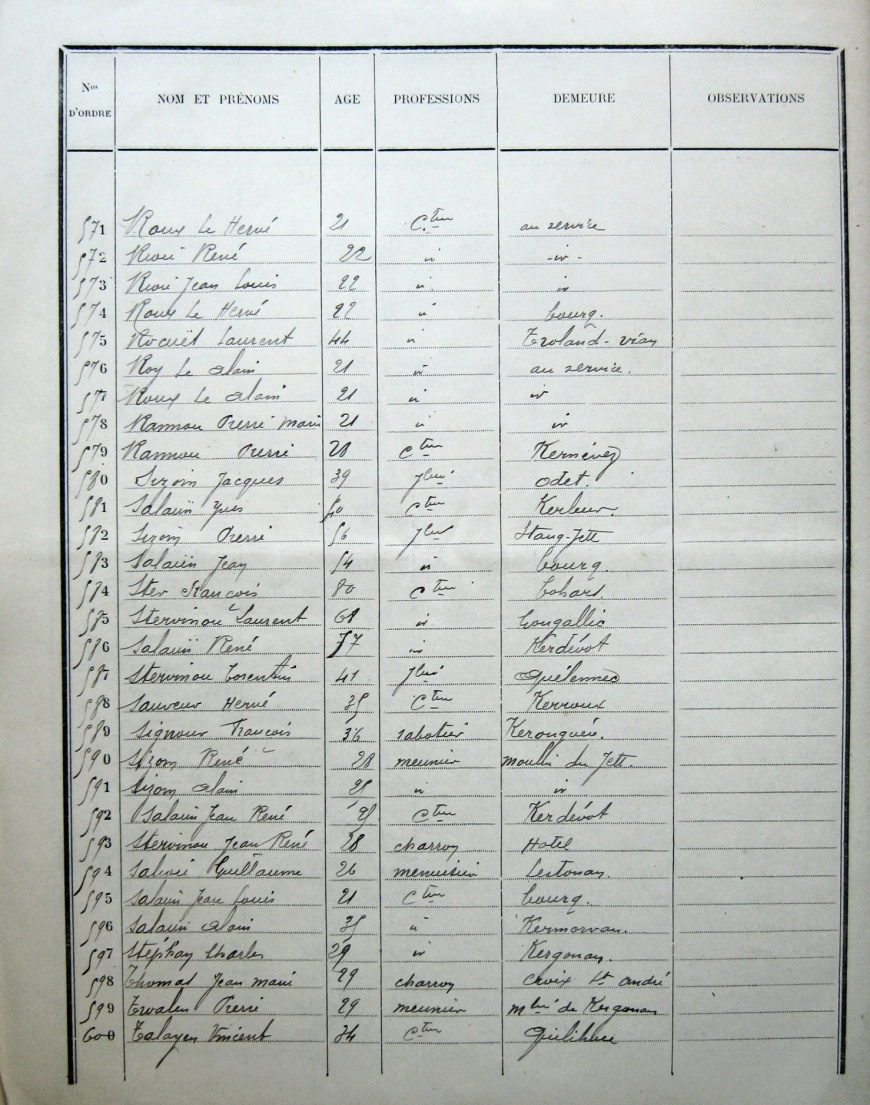 Nos D'ORDRE NOM ET PRÉNOMS AGE PROFESSIONS DEMEURE OBSERVATIONS
571 Roux Le Hervé 21 Cteur au service
572 René 22 " -"-
573 Jean Louis 22 " "
574 Roux Le Hervé 22 " bourg.
575 Rocuët Laurent 44 " Troland-vian
576 Roy Le Alain 21 " au service.
577 Roux Le Alain 21 " "
578 Rannou Pierre Marie 21 " "
579 Rannou Pierre 28 Cteur Kernévez
580 Sizorn Jacques 39 Jlier odet.
581 Salaün Yves Cteur
582 Sizorn Pierre 56 Jlier Stang-Jett
583 Salaün Jean 54 " bourg.
584 Ster Francois 80 Cteur bohars.
585 Stervinou Laurent 68 " Gougallic
586 Salaün René 77 " Kerdévot
587 Stervinou Corentin 41 Jlier Quélennec
588 Sauveur Hervé 35 Cteur Kerroux
589 Signour Francois 36 sabotier
590 Sizorn René 28 meunier moulin du Jett.
591 Sizorn Alain 25 " "
592 Salaün Jean René Cteur Kerdévot
593 Stervinou Jean René 28 charron Hotel
594 Guillaume 26 menuisier Lestonan.
595 Salaün Jean Louis 21 Cteur bourg.
596 Salaün Alain 35 " Kermorvan.
597 Stéphay Charles 29 " Kergonan.
598 Thomas Jean Marie 29 charron croix St André
599 Troalen Pierre 29 meunier de Kergonan
600 Talayen Vincent 34 Cteur